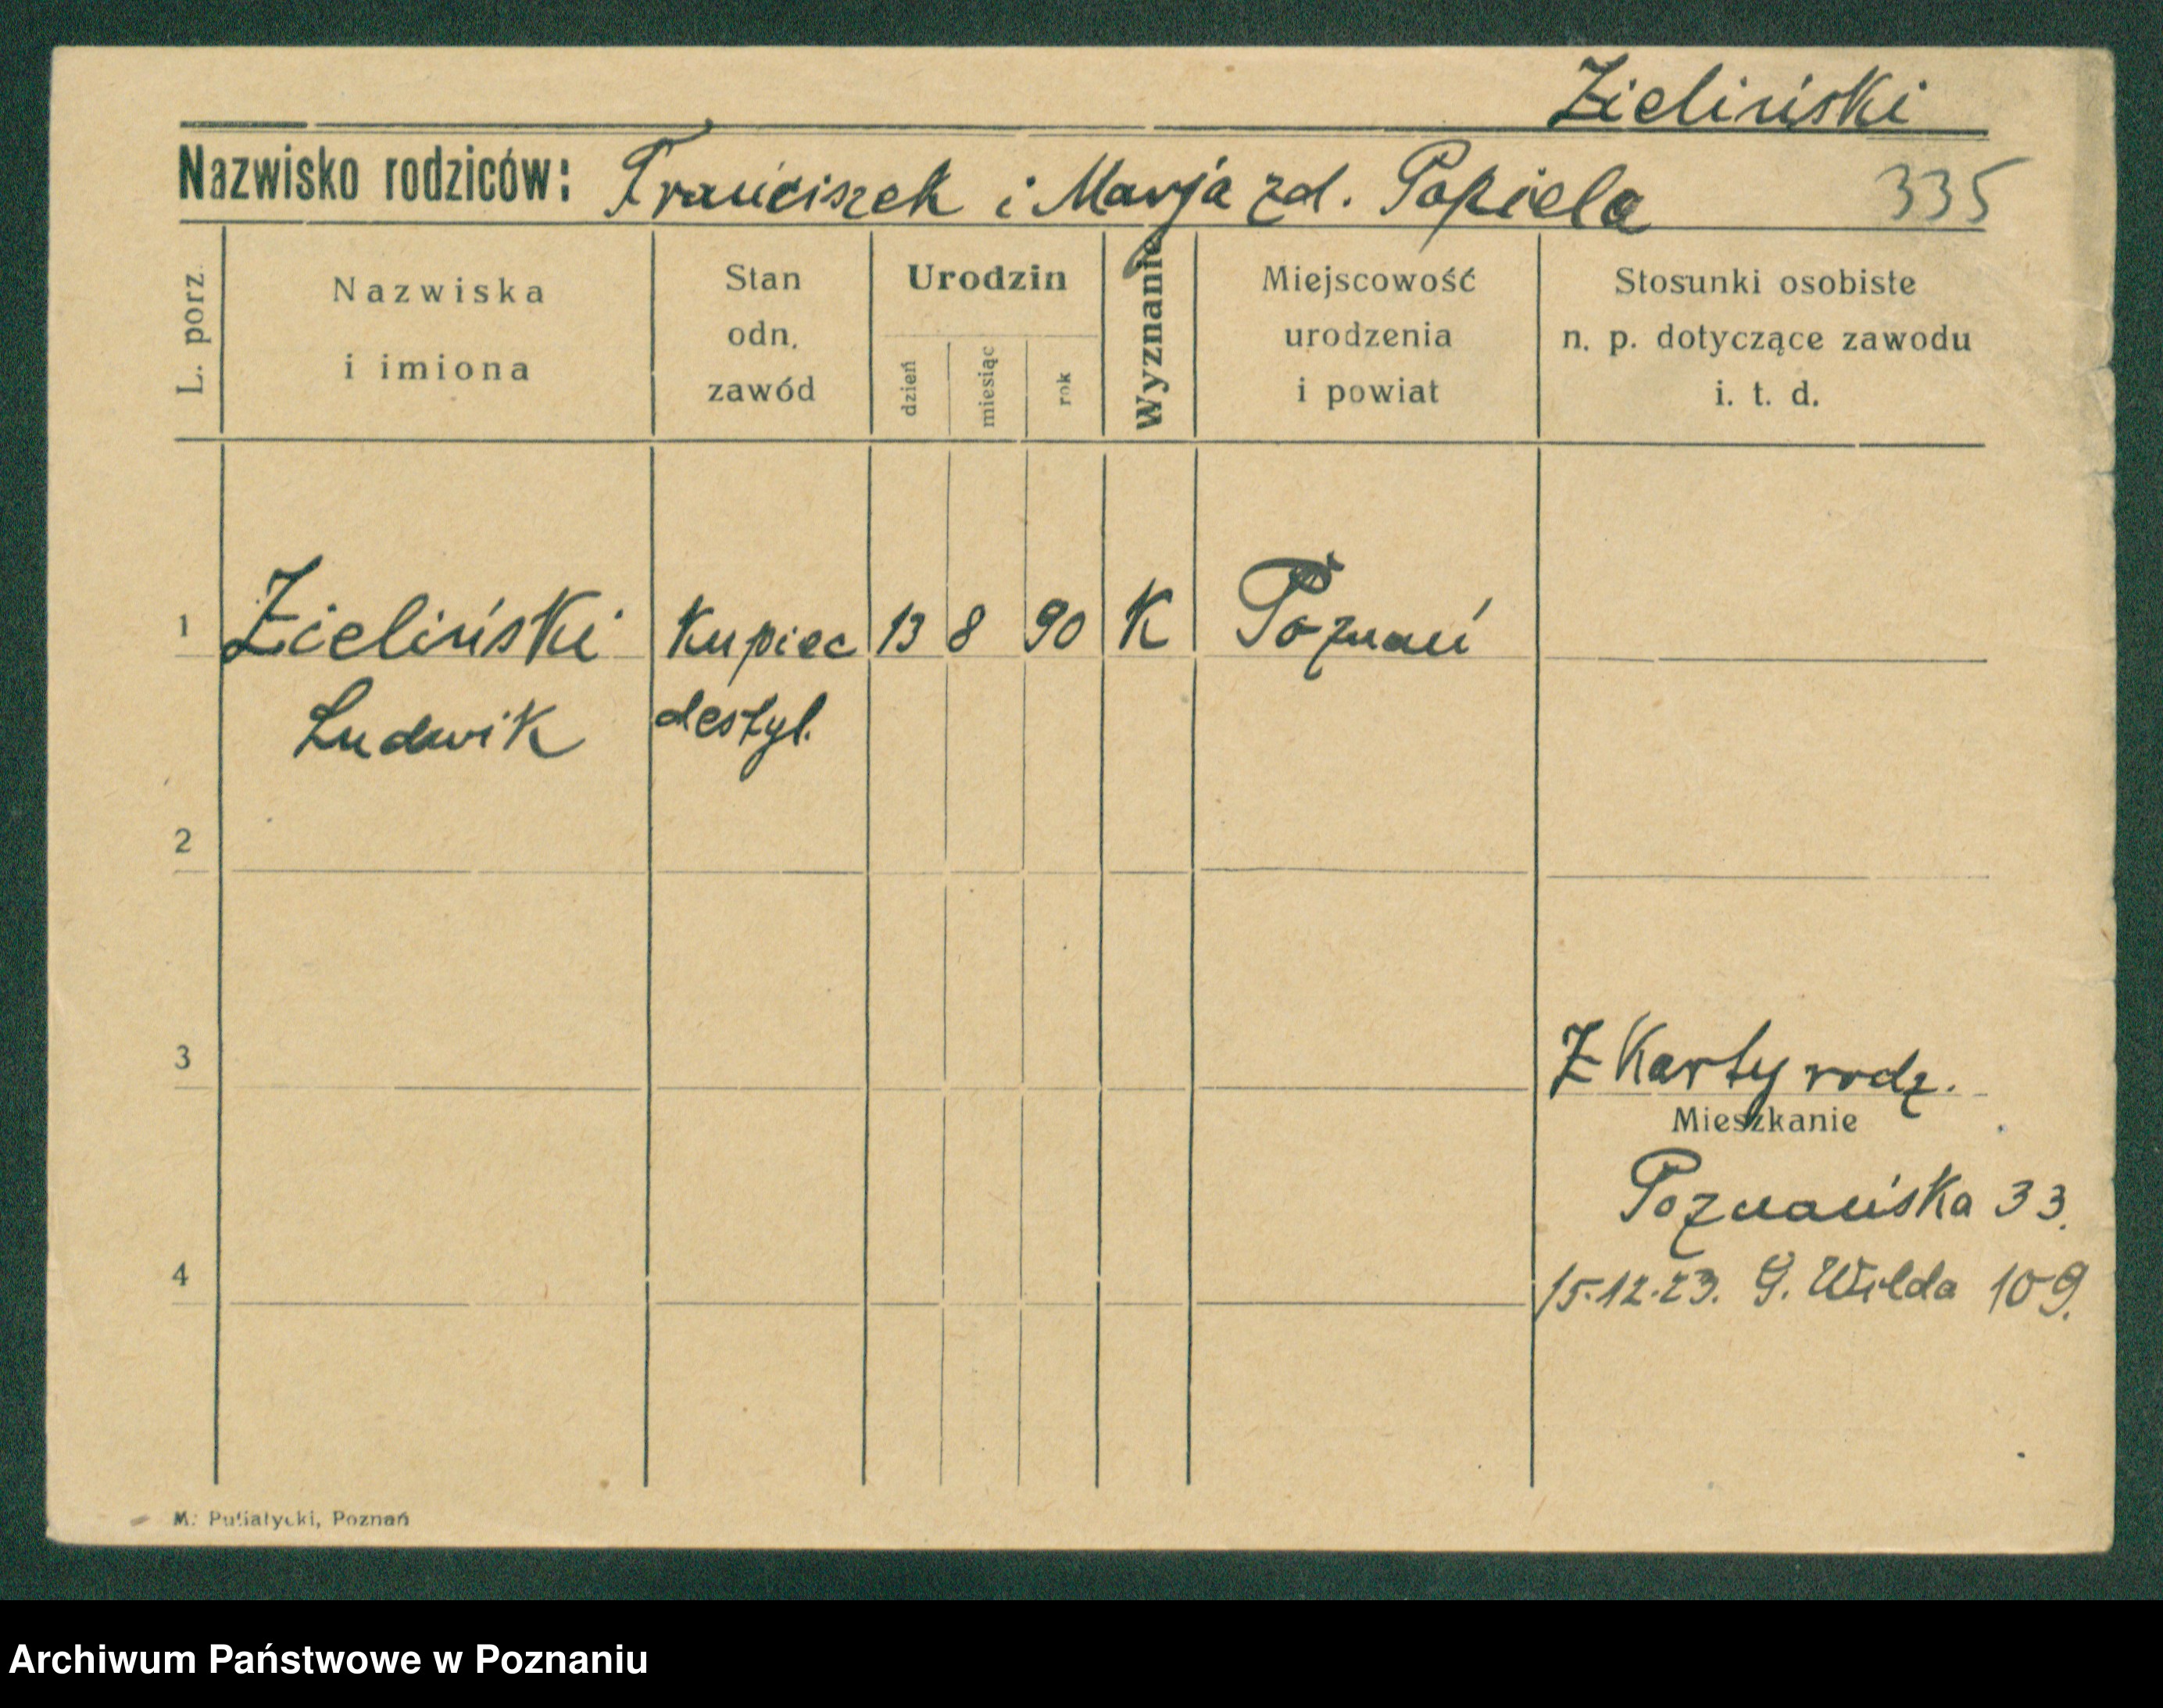 Zieliński
Nazwisko rodziców: Franciszek i Marja zd. Popiela 335
L. porz.
Nazwiska i imiona
Stan odn. zawód
Urodzin
dzień miesiąc rok
Wyznanie
Miejscowość urodzenia i powiat
Stosunki osobiste
n. p. dotyczące zawodu
i. t. d.
1 Zieliński Kupiec 13 8 90 K Poznań
Ludwik destyl.
2
3 Z Karty rodz.
Mieszkanie
Poznańska 33.
4 15.12.23. G. Wilda 109.
M. Putiatycki, Poznań
Archiwum Państwowe w Poznaniu